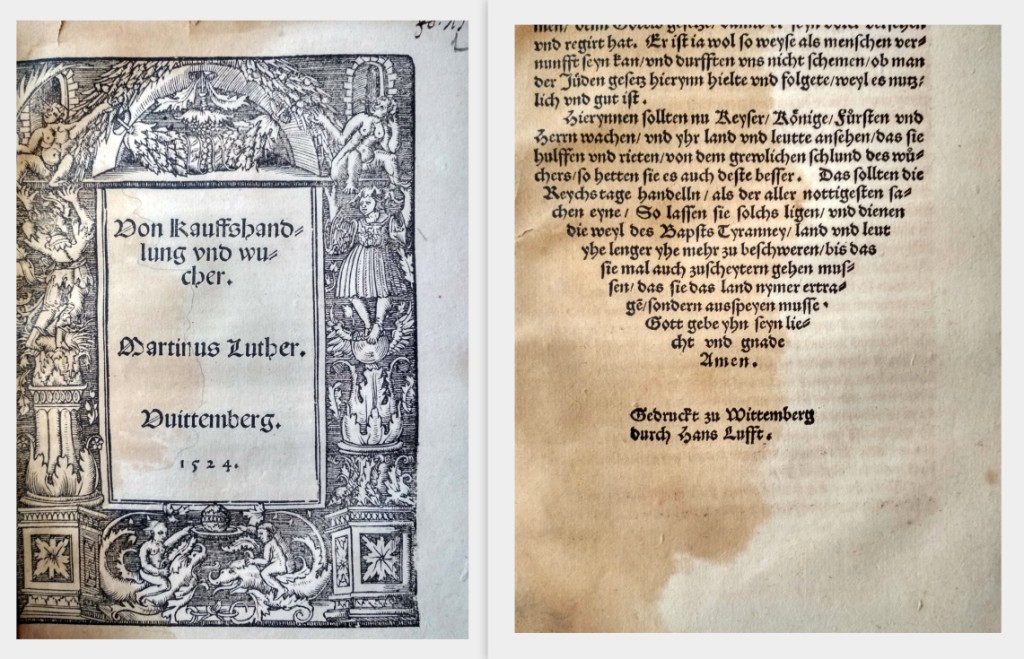 Von Kauffshand⸗
lung vnd wu⸗
cher.
Martinus Luther.
Vuittemberg.
1524.
vnd regirt hat. Er ist ia wol so weyse als menschen ver⸗
nunfft seyn kan/vnd durfften vns nicht schemen/ob man
der Jüden gesetz hierynn hielte vnd folgete/weyl es nutz⸗
lich vnd gut ist.
Hierynnen sollten nu Keyser/Könige/Fürsten vnd
Herrn wachen/vnd yhr land vnd leutte ansehen/das sie
hulffen vnd rieten/von dem grewlichen schlund des wů⸗
chers/so hetten sie es auch deste besser. Das sollten die
Reychstage handelln/als der aller nottigesten sa⸗
chen eyne/So lassen sie solchs ligen/vnd dienen
die weyl des Bapsts Tyranney/land vnd leut
yhe lenger yhe mehr zu beschweren/bis das
sie mal auch zuscheytern gehen mus⸗
sen/das sie das land nymer ertra⸗
ge/sondern ausspeyen musse.
Gott gebe yhn seyn lie⸗
cht vnd gnade
Amen.
Gedruckt zu Wittemberg
durch Hans Lufft.